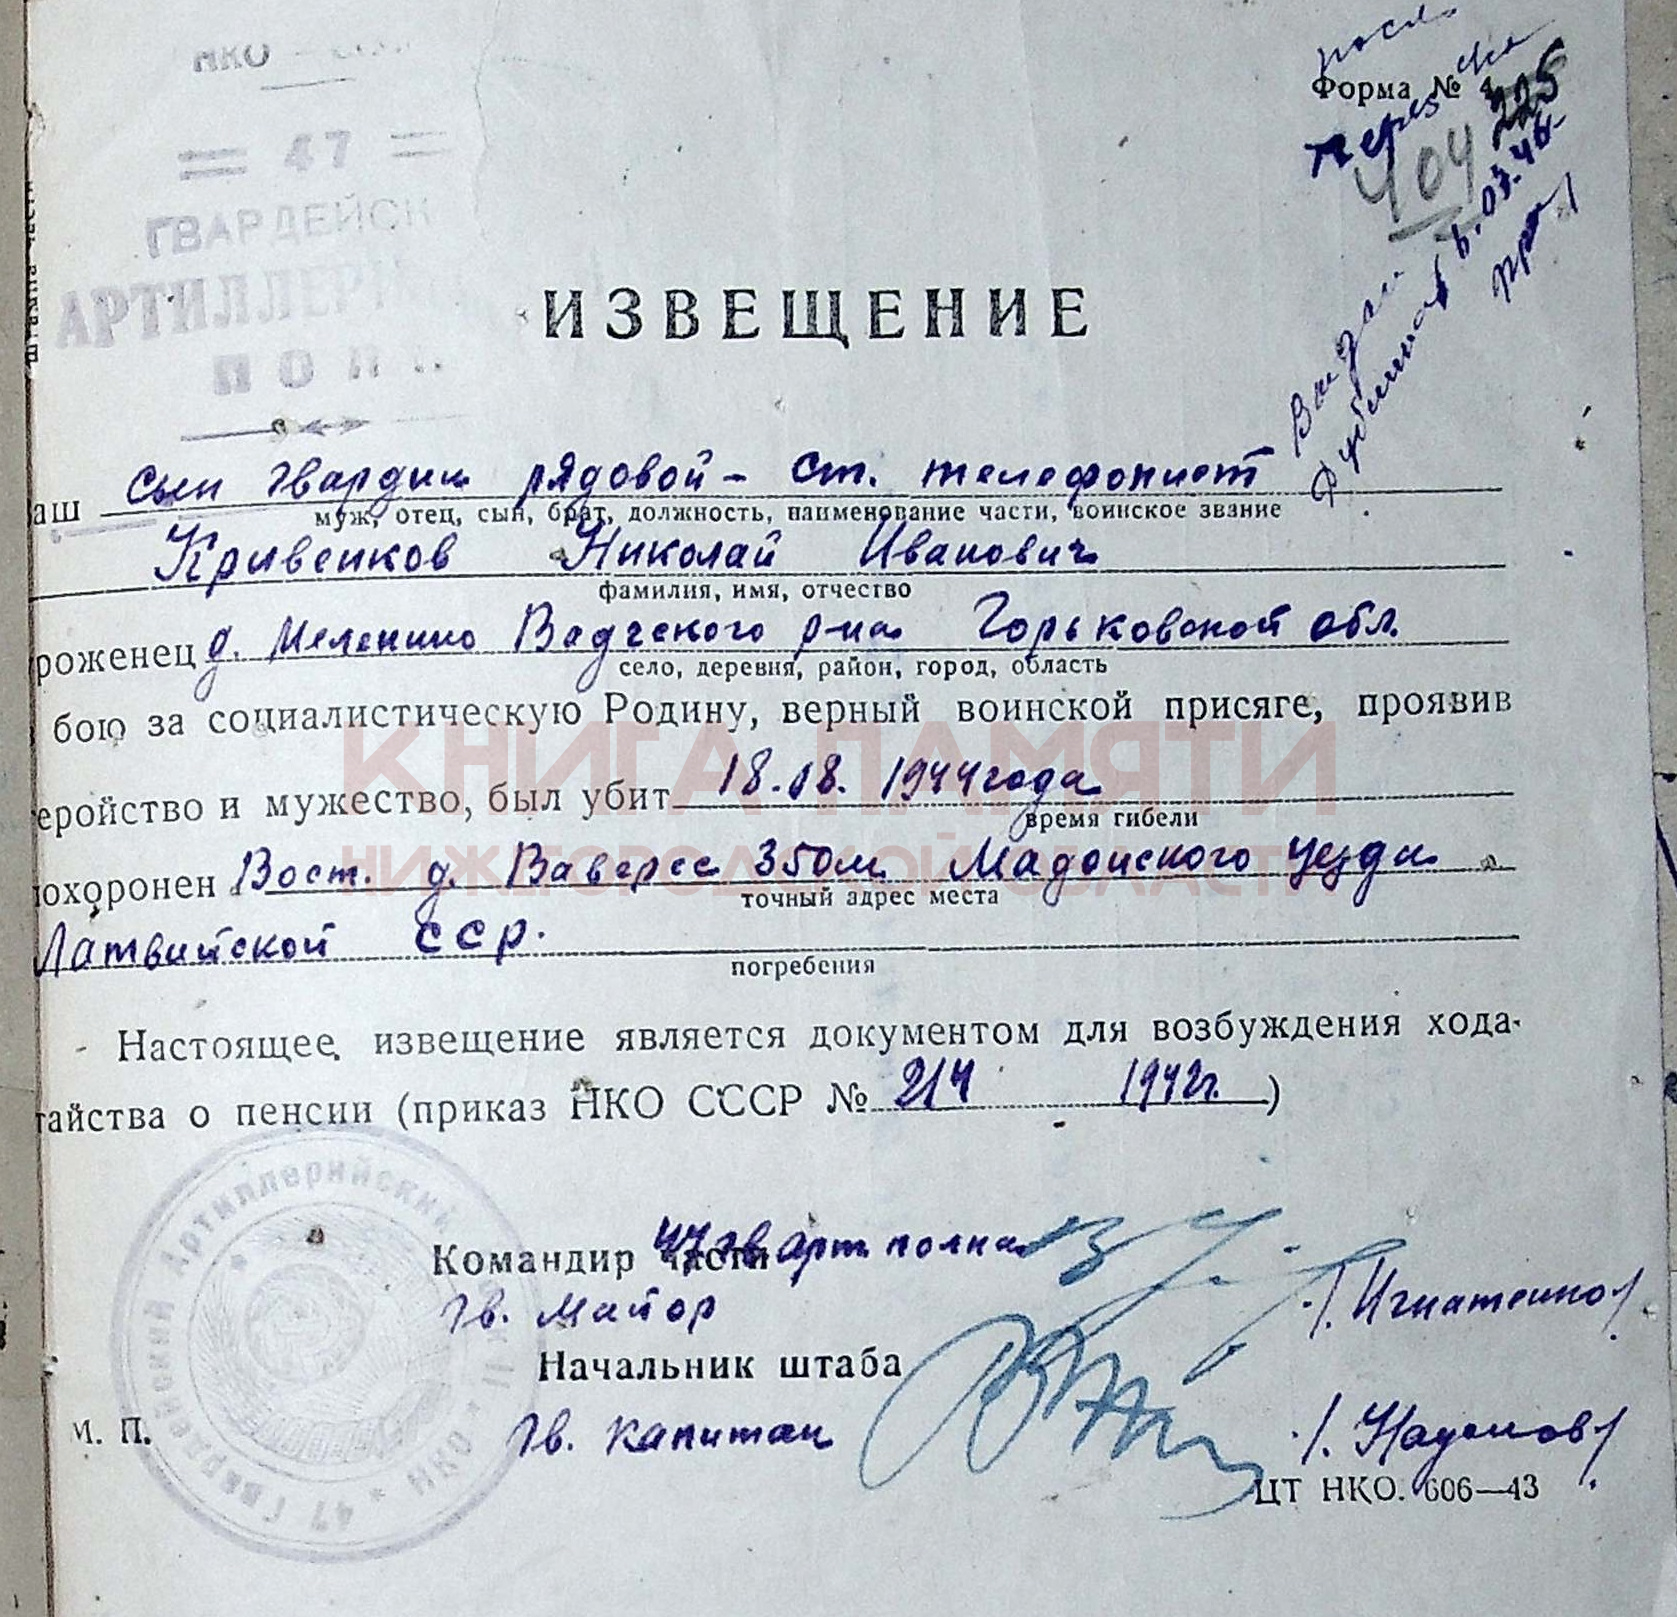 НКО
47
ГВАРДЕЙСК
АРТИЛЛЕРИ
ПОЛ
Форма № 4
225
404
6.03.46
ИЗВЕЩЕНИЕ
аш сын гвардии рядовой - ст. телефонист
муж, отец, сын, брат, должность, наименование части, воинское звание
Кривенков Николай Иванович
фамилия, имя, отчество
роженец д. Меленино Вадчского р-на Горьковской обл.
село, деревня, район, город, область
бою за социалистическую Родину, верный воинской присяге, проявив
еройство и мужество, был убит 18.08.1944 года
время гибели
охоронен Вост. д. Вавересе 350м Мадонского уезда
точный адрес места
Латвийской ССР.
погребения
Настоящее извещение является документом для возбуждения хода-
тайства о пенсии (приказ НКО СССР № 214 1942г.)
Командир части 47 гв арт полка
Гв. майор /Игнатенко/
Начальник штаба
Гв. капитан /Наумов/
М. П.
ЦТ НКО. 606—43
47 Гвардейский Артиллерийский
НКО
КНИГА ПАМЯТИ
НИЖЕГОРОДСКОЙ ОБЛАСТИ